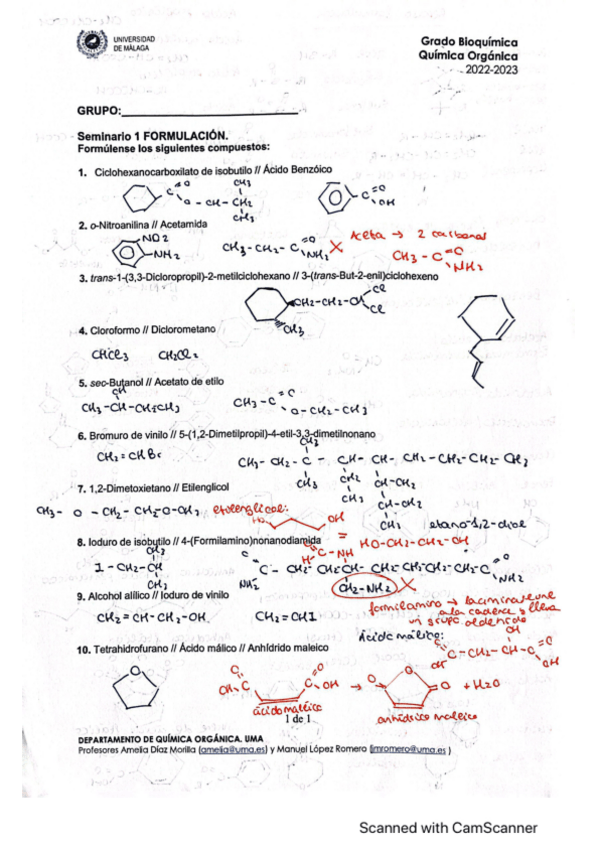 UNIVERSIDAD
DE MÁLAGA
Grado Bioquímica
Química Orgánica
2022-2023
GRUPO:
Seminario 1 FORMULACIÓN.
Formúlense los siguientes compuestos:
1. Ciclohexanocarboxilato de isobutilo // Ácido Benzóico
CH3
C=O
O-CH-CH2
CH3
C=O
OH
2. o-Nitroanilina // Acetamida
NO2
NH2
CH3-CH2-C=O
NH2
X
Aceta → 2 carbonos
CH3-C=O
NH2
3. trans-1-(3,3-Dicloropropil)-2-metilciclohexano // 3-(trans-But-2-enil)ciclohexeno
CH2-CH2-CH
Cl
Cl
CH3
4. Cloroformo // Diclorometano
CHCl3 CH2Cl2
5. sec-Butanol // Acetato de etilo
OH
CH3-CH-CH2CH3
CH3-C=O
O-CH2-CH3
6. Bromuro de vinilo // 5-(1,2-Dimetilpropil)-4-etil-3,3-dimetilnonano
CH2=CHBr
CH3
CH3-CH2-C-CH-CH-CH2-CH2-CH2-CH3
CH3 CH2 CH-CH3
CH3 CH-CH3
CH3
7. 1,2-Dimetoxietano // Etilenglicol
CH3-O-CH2-CH2-O-CH3
etilenglicol:
HO
OH
etano-1,2-diol
= HO-CH2-CH2-OH
8. Ioduro de isobutilo // 4-(Formilamino)nonanodiamida
CH3
I-CH2-CH
CH3
H-C-NH
O
C-CH2-CH2CH-CH2-CH2CH2-CH2C=O
NH2
NH2
CH2-NH2 X
9. Alcohol alílico // Ioduro de vinilo
CH2=CH-CH2-OH
CH2=CHI
formilamino → la amina se une
a la cadena y lleva
un grupo aldehído
10. Tetrahidrofurano // Ácido málico // Anhídrido maleico
Ácido málico:
OH
C-CH2-CH-C=O
OH
OH
O
OH-C
C-OH
ácido maléico
→
O
O
=O
+H2O
anhídrido maleico
1 de 1
DEPARTAMENTO DE QUÍMICA ORGÁNICA. UMA
Profesores Amelia Díaz Morilla (amelia@uma.es) y Manuel López Romero (jmromero@uma.es )
Scanned with CamScanner